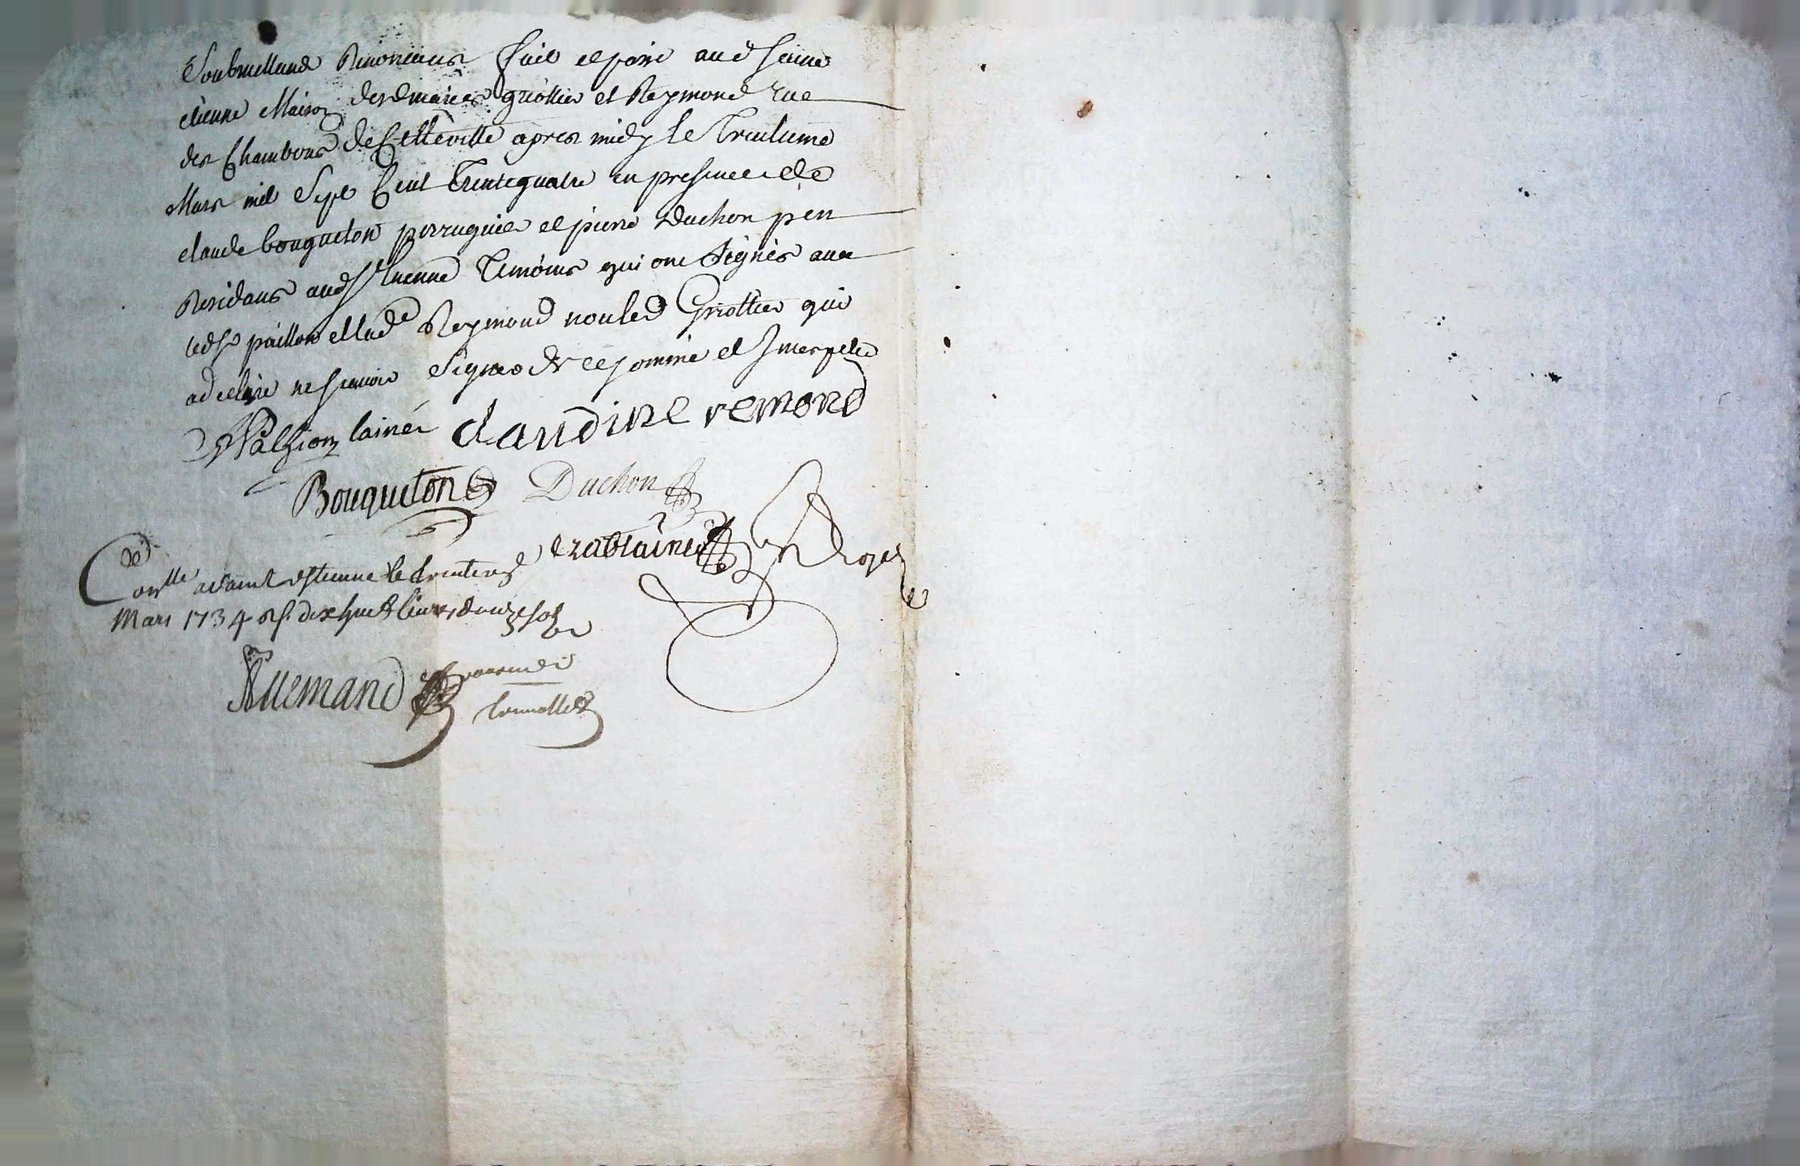 Soubmettans Renoncans fait et passé aud Saint
etienne Maison desd mariés Griottier et Reymond rue
des Chambons de Cetteville apres midy le Trentieme
Mars mil Sept Cent Trente quatre en presence de
claude bouqueton perruquier et pierre Duchon
Residans aud St Etienne Temoins qui ont signés avec
led Sr paillon et lad Reymond non led Griottier qui
a declaré ne scavoir signer de ce sommé et Interpellé
Palhion lainé claudine remond
Bouqueton Duchon
Conlle a Saint estienne le trente
Mars 1734 dix huit livres douze sols
Allemand